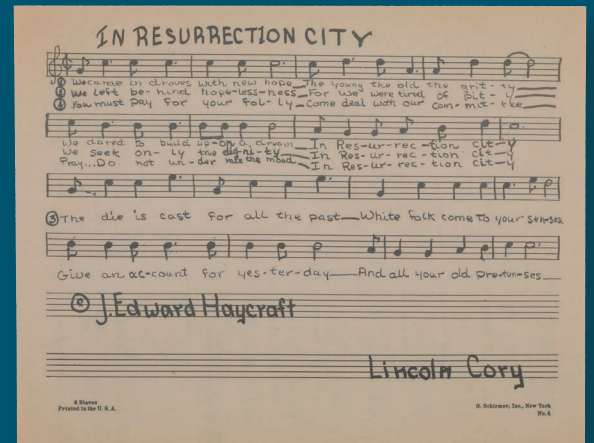 IN RESURRECTION CITY
① We came in droves with new hope__The young the old the grit-ty
② We left be-hind hope-less-ness__For We were tired of pit-y
④ You must pay for your fol-ly__Come deal with our com-mit-tee
We dared to build up-on a dream__In Res-ur-rec-tion cit-y
We seek on-ly true dig-ni-ty__In Res-ur-rec-tion cit-y
Pray...Do not un-der rate the mood__In Res-ur-rec-tion cit-y
③ The die is cast for all the past__White folk come to your sen-ses
Give an ac-count for yes-ter-day__And all your old pre-ten-ses
© J. Edward Haycraft
Lincoln Cory
6 Staves
Printed in the U. S. A.
G. Schirmer, Inc., New York
No. 4